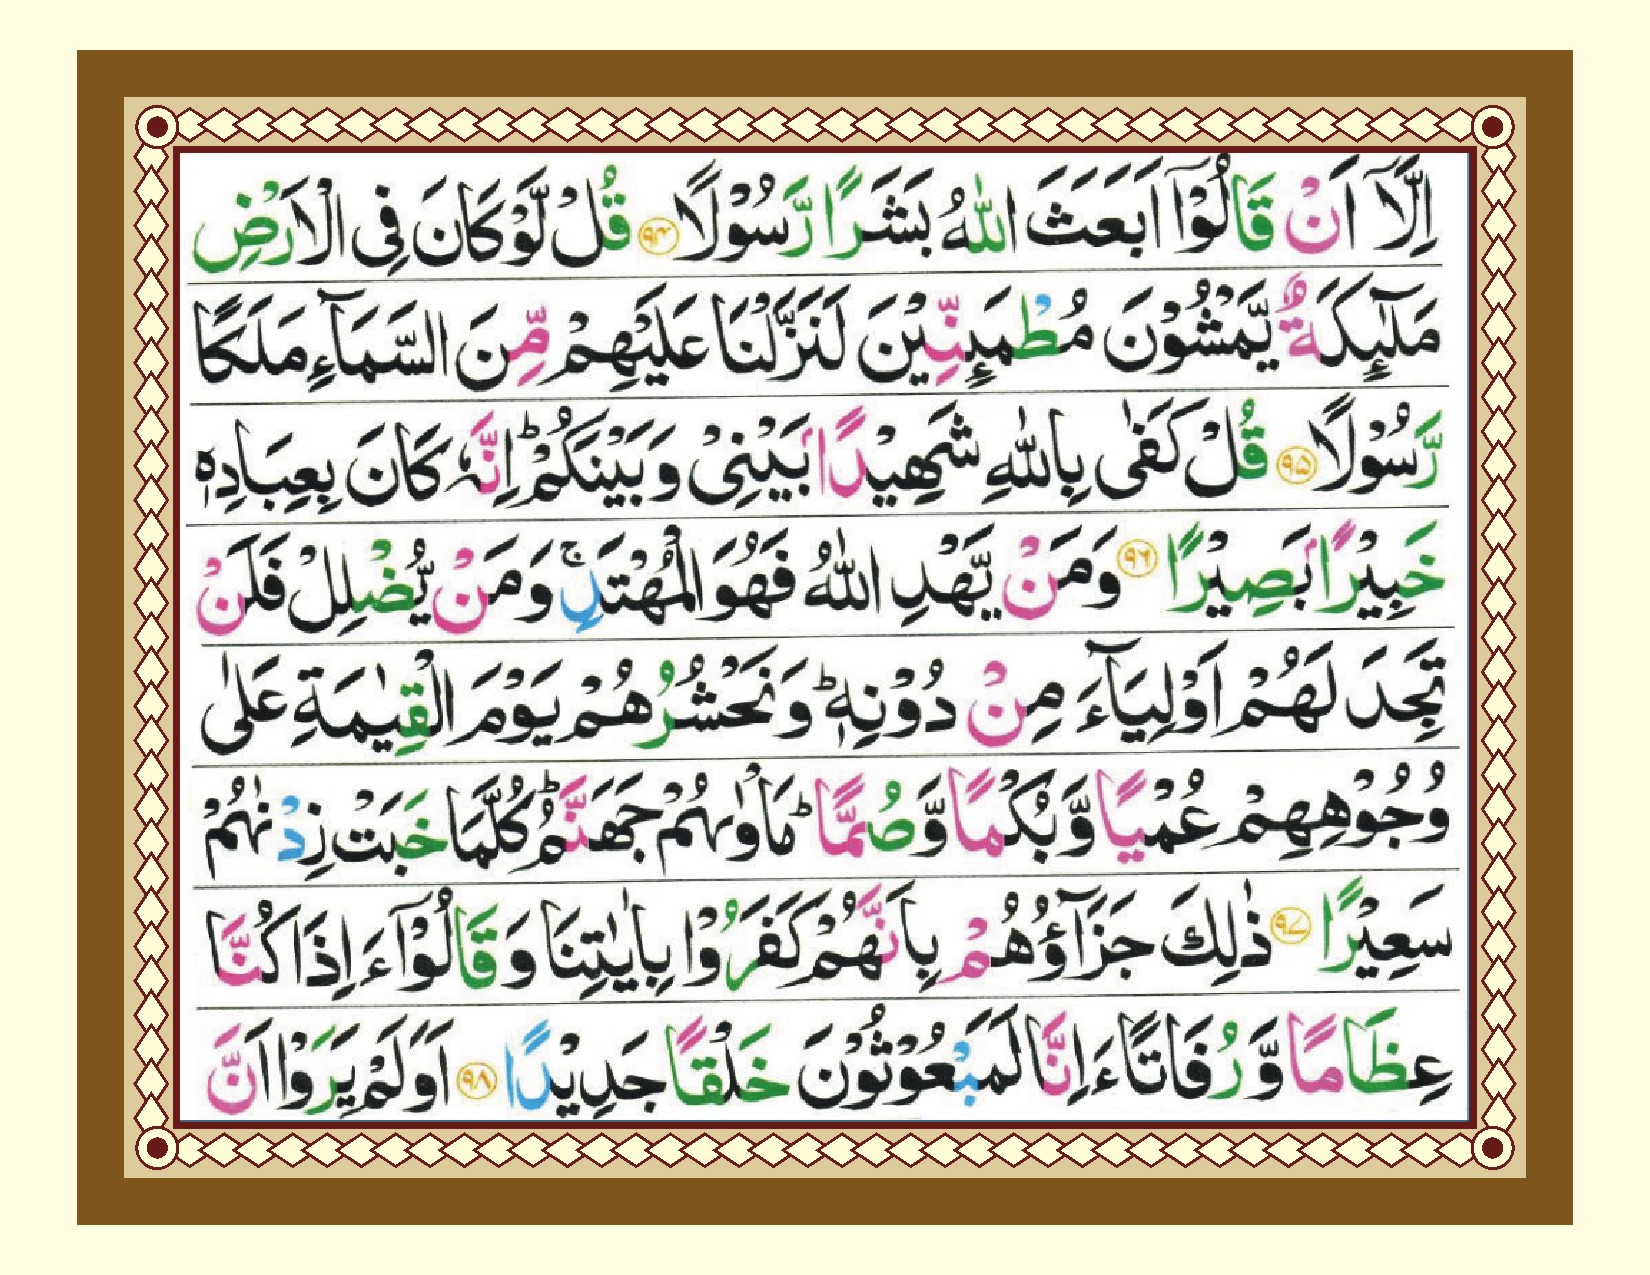 اِلَّاۤ اَنْ قَالُوْۤا اَبَعَثَ اللّٰهُ بَشَرًا رَّسُوْلًا ﴿۹۴﴾ قُلْ لَّوْ كَانَ فِی الْاَرْضِ
مَلٰٓىِٕكَةٌ یَّمْشُوْنَ مُطْمَىِٕنِّیْنَ لَنَزَّلْنَا عَلَیْهِمْ مِّنَ السَّمَآءِ مَلَكًا
رَّسُوْلًا ﴿۹۵﴾ قُلْ كَفٰی بِاللّٰهِ شَهِیْدًۢا بَیْنِیْ وَ بَیْنَكُمْ ؕ اِنَّهٗ كَانَ بِعِبَادِهٖ
خَبِیْرًۢا بَصِیْرًا ﴿۹۶﴾ وَ مَنْ یَّهْدِ اللّٰهُ فَهُوَ الْمُهْتَدِ ۚ وَ مَنْ یُّضْلِلْ فَلَنْ
تَجِدَ لَهُمْ اَوْلِیَآءَ مِنْ دُوْنِهٖ ؕ وَ نَحْشُرُهُمْ یَوْمَ الْقِیٰمَةِ عَلٰی
وُجُوْهِهِمْ عُمْیًا وَّ بُكْمًا وَّ صُمًّا ؕ مَاْوٰىهُمْ جَهَنَّمُ ؕ كُلَّمَا خَبَتْ زِدْنٰهُمْ
سَعِیْرًا ﴿۹۷﴾ ذٰلِكَ جَزَآؤُهُمْ بِاَنَّهُمْ كَفَرُوْا بِاٰیٰتِنَا وَ قَالُوْۤا ءَاِذَا كُنَّا
عِظَامًا وَّ رُفَاتًا ءَاِنَّا لَمَبْعُوْثُوْنَ خَلْقًا جَدِیْدًا ﴿۹۸﴾ اَوَ لَمْ یَرَوْا اَنَّ